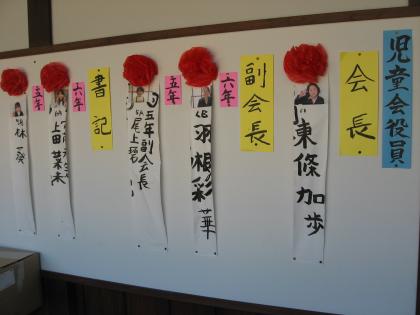 児童会役員
会長
東條加歩
副会長
六年
羽根彩華
五年
五年副会長
尾上
書記
六年
上田菜未
五年
林葵